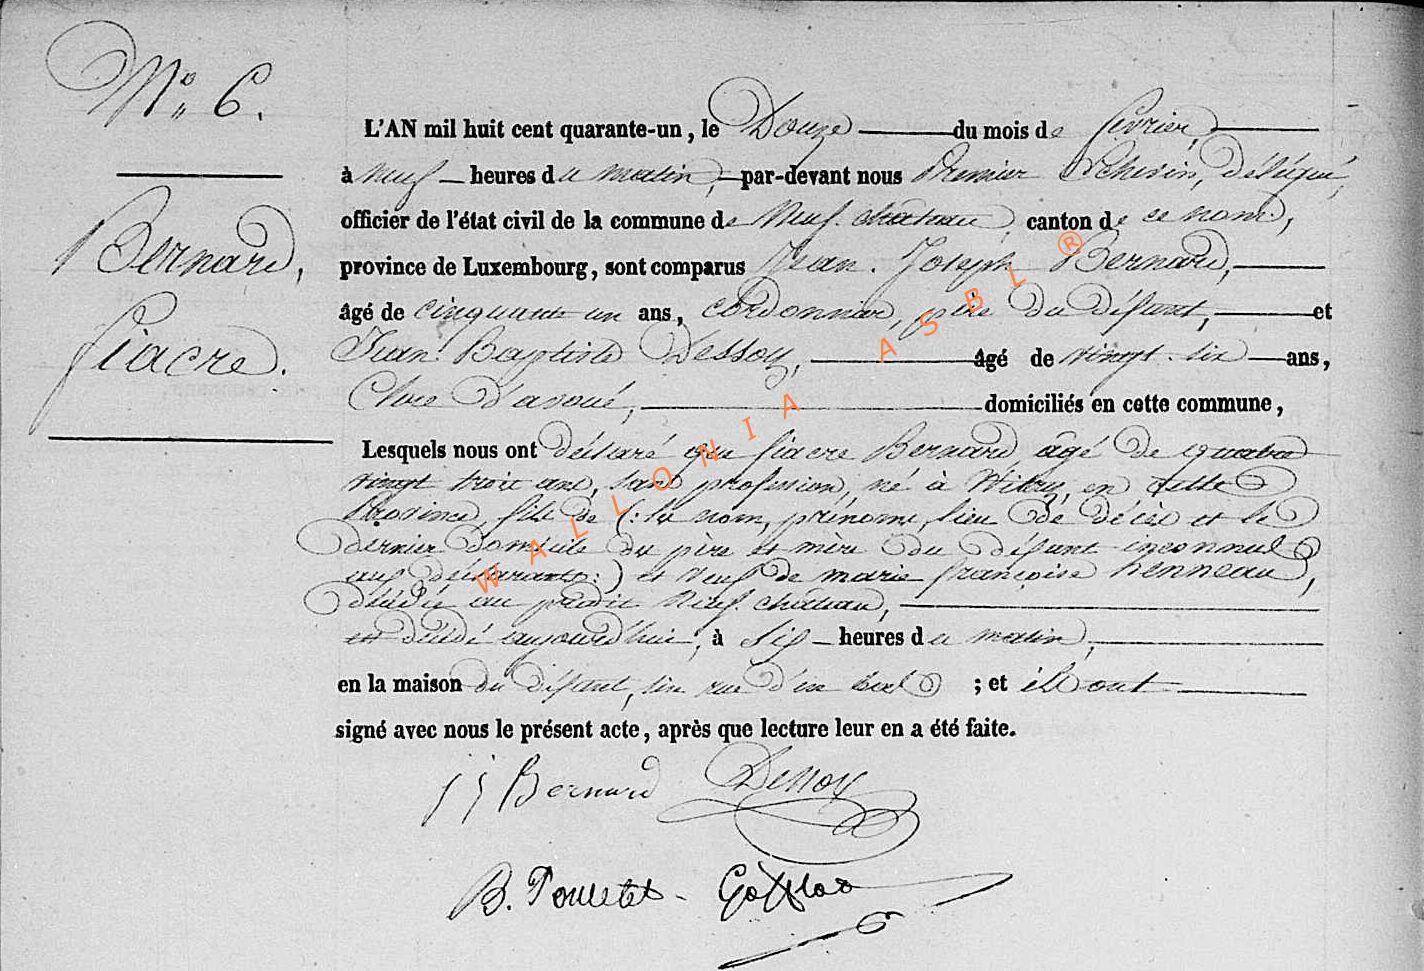 N° 6.
Bernard,
fiacre.
L'AN mil huit cent quarante-un, le Douze du mois de février,
à neuf heures du matin, par-devant nous Premier Echevin, délégué,
officier de l'état civil de la commune de Neufchateau, canton de ce nom,
province de Luxembourg, sont comparus Jean Joseph Bernard,
âgé de cinquante un ans, cordonnier, du défunt, et
Jean Baptiste Dessoy, âgé de vingt six ans,
Clerc d'avoué, domiciliés en cette commune,
Lesquels nous ont déclaré que fiacre Bernard âgé de quatre
vingt trois ans, sans profession, né à Witry, en cette
Province, fils de (: les nom, prénoms, lieu de décès et le
dernier domicile du père et mère du défunt inconnus
aux déclarants :) et veuf de marie françoise henneau,
décédée au predit Neufchateau,
est décédé aujourd'hui, à six heures du matin,
en la maison du défunt, sise rue d'en bas ; et ils ont
signé avec nous le présent acte, après que lecture leur en a été faite.
JJ Bernard Dessoy
B.
WALLONIA ASBL ®